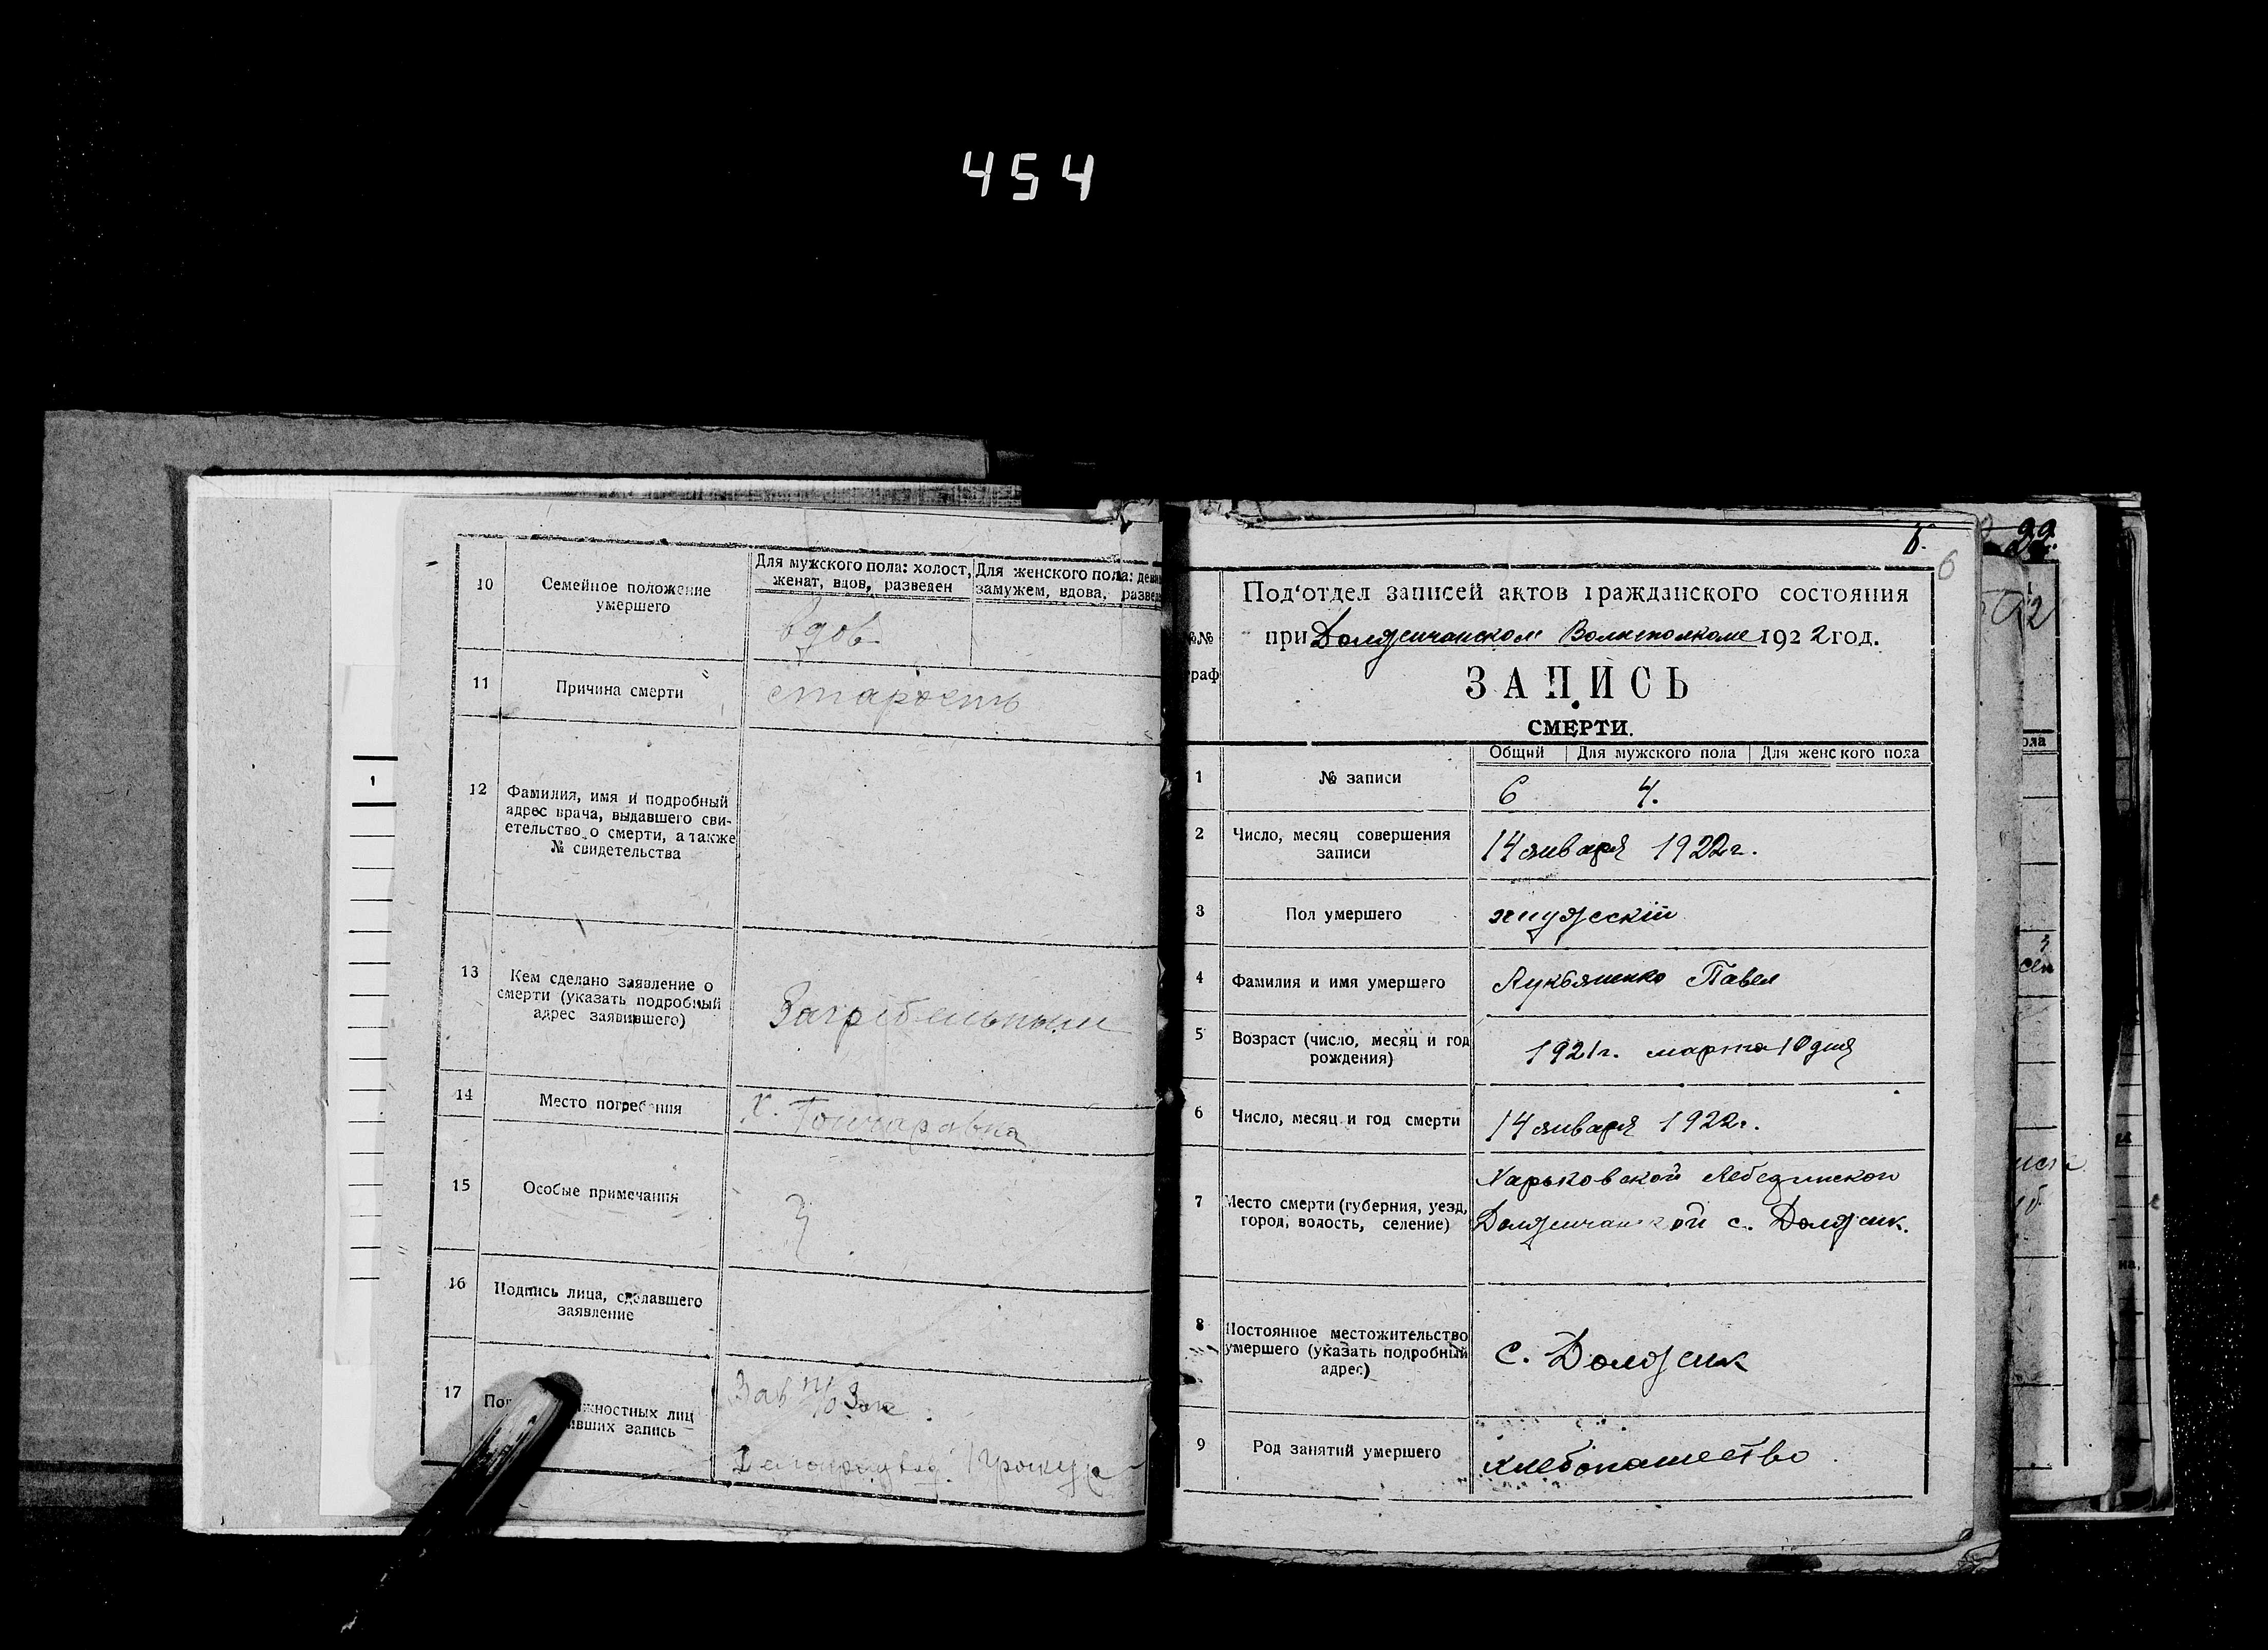 454
10
Семейное положение
умершего
Для мужского пола: холост,
женат, вдов, разведен
Для женского пола:
замужем, вдова,
вдов
11
Причина смерти
старость
12
Фамилия, имя и подробный
адрес врача, выдавшего сви-
етельство о смерти, а также
№ свидетельства
13
Кем сделано заявление о
смерти (указать подробный
адрес заявившего)
14
Место погребения
х. Гончаровка
15
Особые примечания
16
Подпись лица, сделавшего
заявление
17
жностных лиц
ивших запись
Зав п/о Загс
6
Под'отдел записей актов гражданского состояния
при Должичанском Волисполкоме 1922 год.
№№
граф
ЗАПИСЬ
СМЕРТИ.
Общий
Для мужского пола
Для женского пола
1
№ записи
6
4.
2
Число, месяц совершения
записи
14 января 1922г.
3
Пол умершего
мужескій
4
Фамилия и имя умершего
Лукьяненко Павел
5
Возраст (число, месяц и год
рождения)
1921г. марта 10 дня
6
Число, месяц и год смерти
14 января 1922г.
7
Место смерти (губерния, уезд,
город, волость, селение)
Харьковской Лебединской
Должичанской с. Должик.
8
Постоянное местожительство
умершего (указать подробный
адрес)
с. Должик
9
Род занятий умершего
хлебопашество